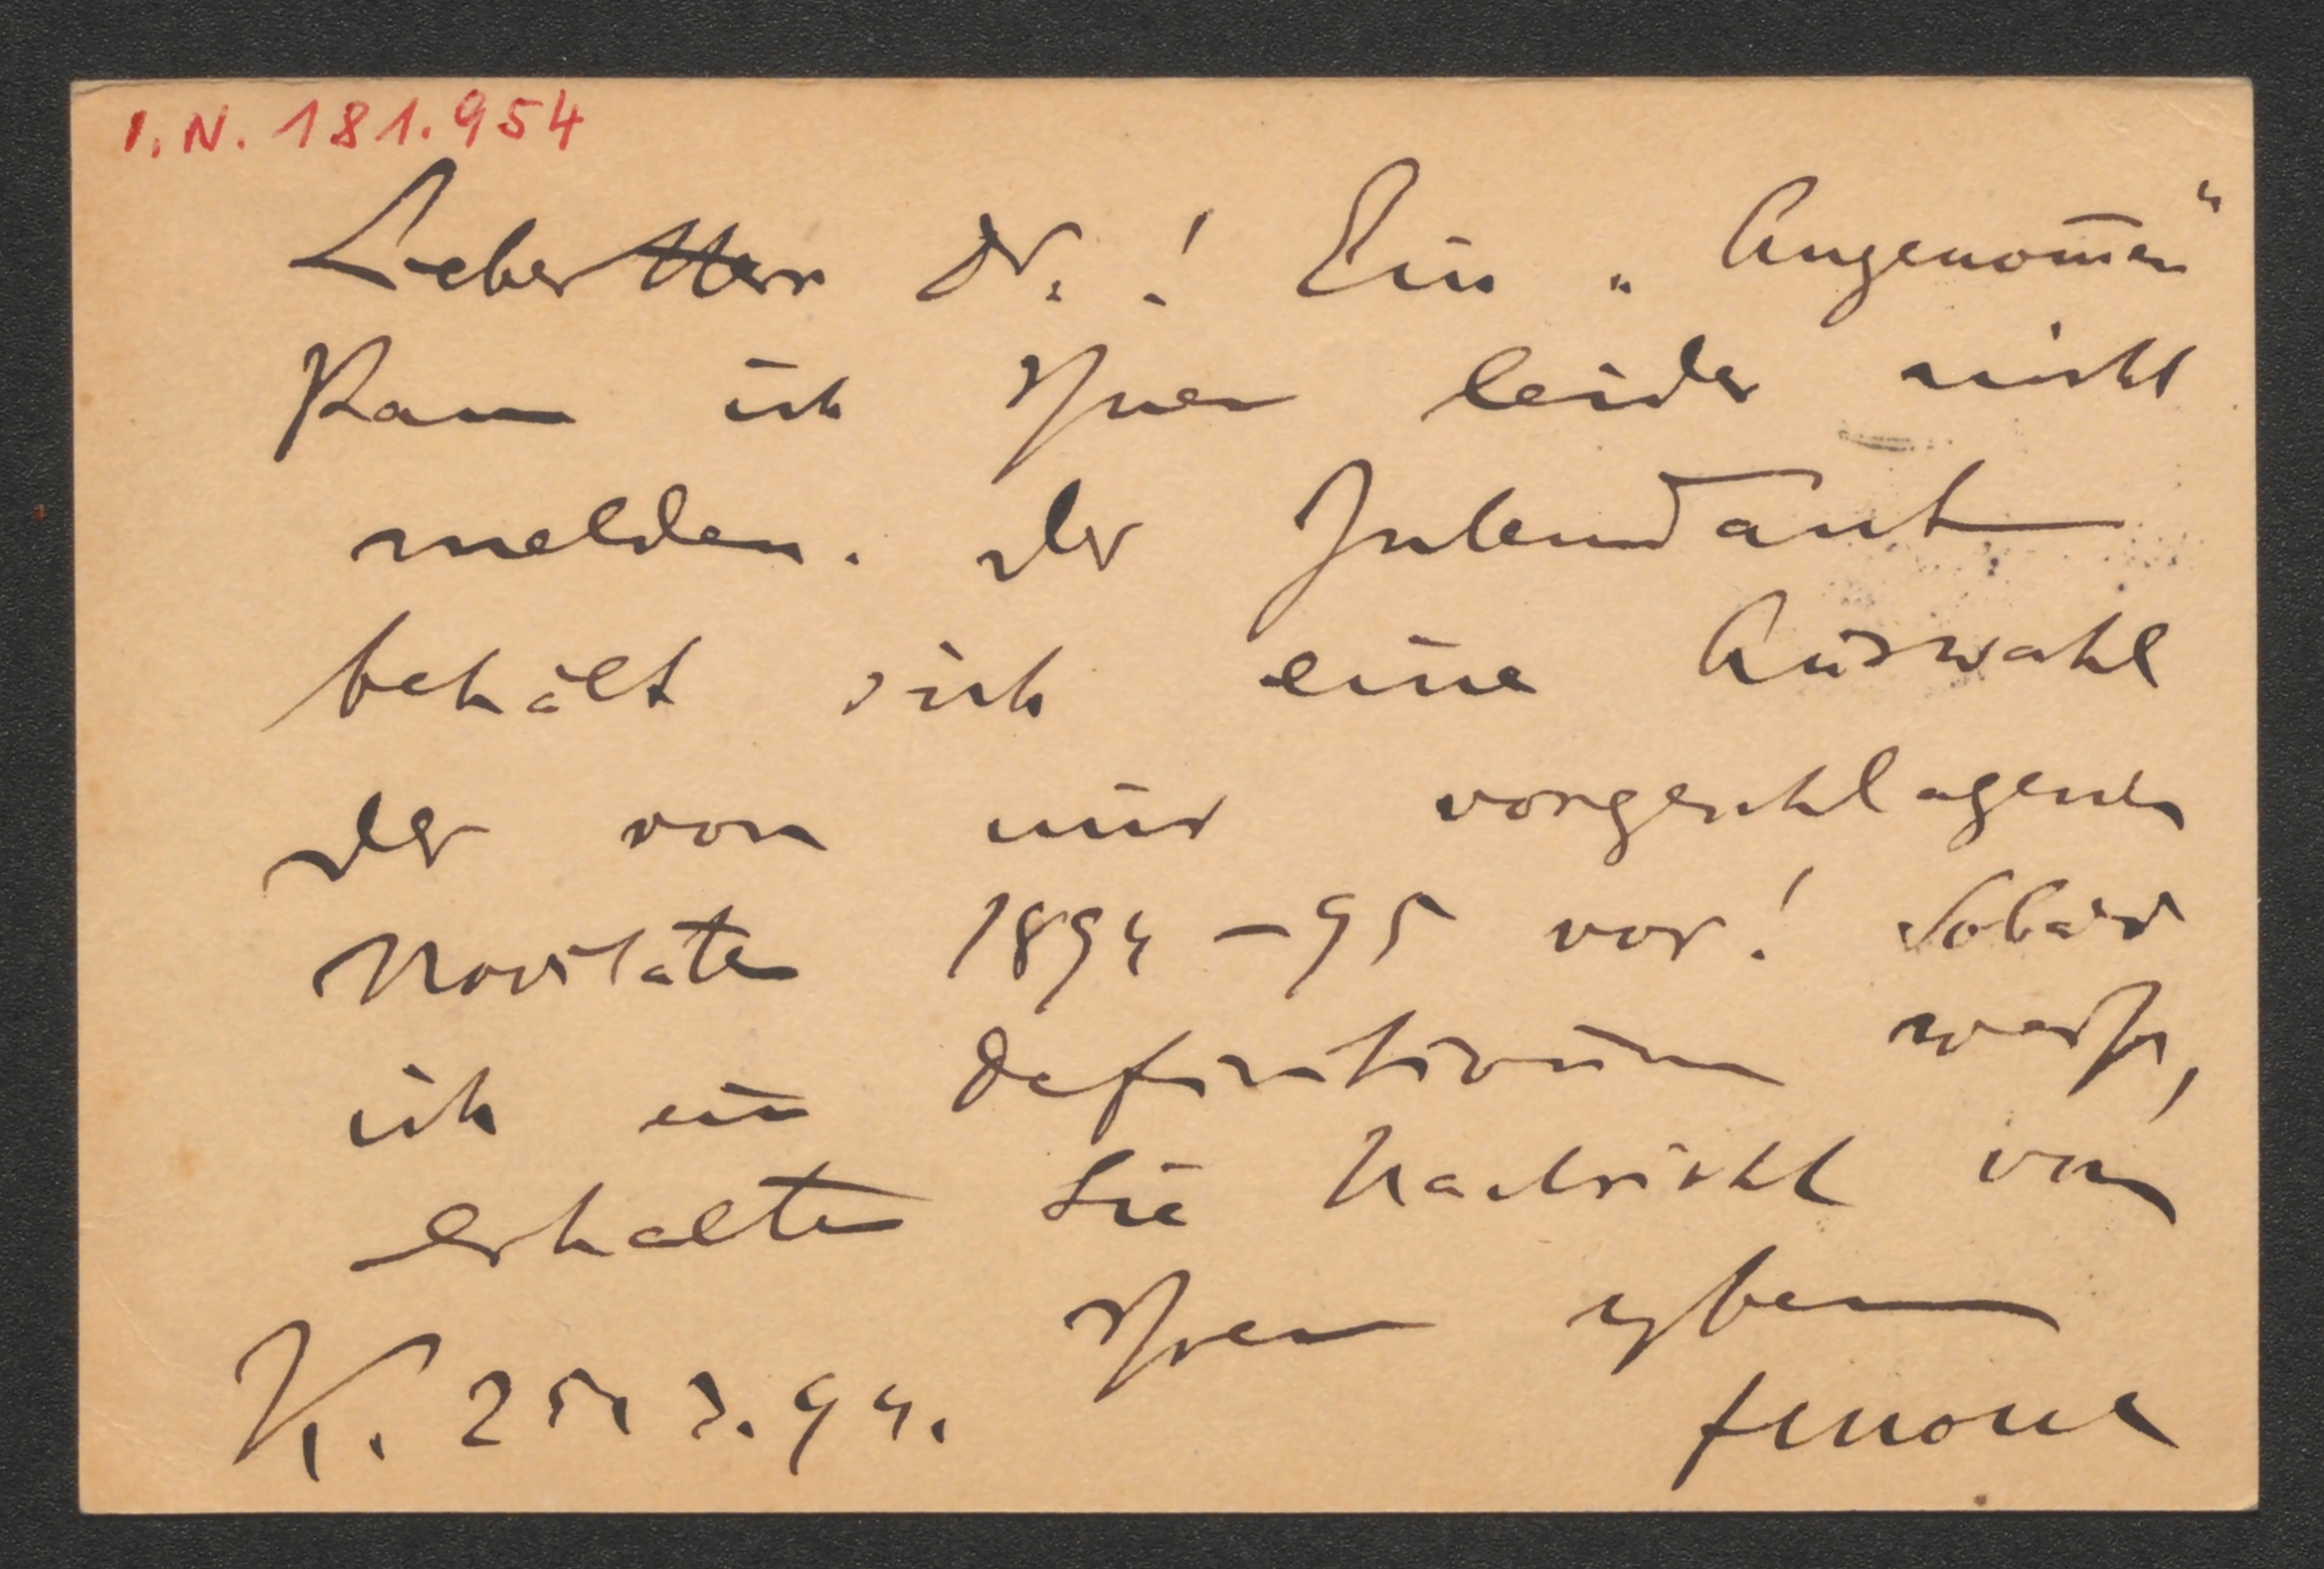 I.N. 181.954
Lieber Herr Dr.! Ein „Angenom̄en“
Kann ich Ihnen leider nicht
melden. Der Intendant
behält sich eine Auswahl
der von mir vorgeschlagenen
Novitäten 1894–95 vor! Sobald
ich ein Definitivum weiß,
erhalten Sie Nachricht von
Ihrem ergbenen
K. 25. 3. 94.